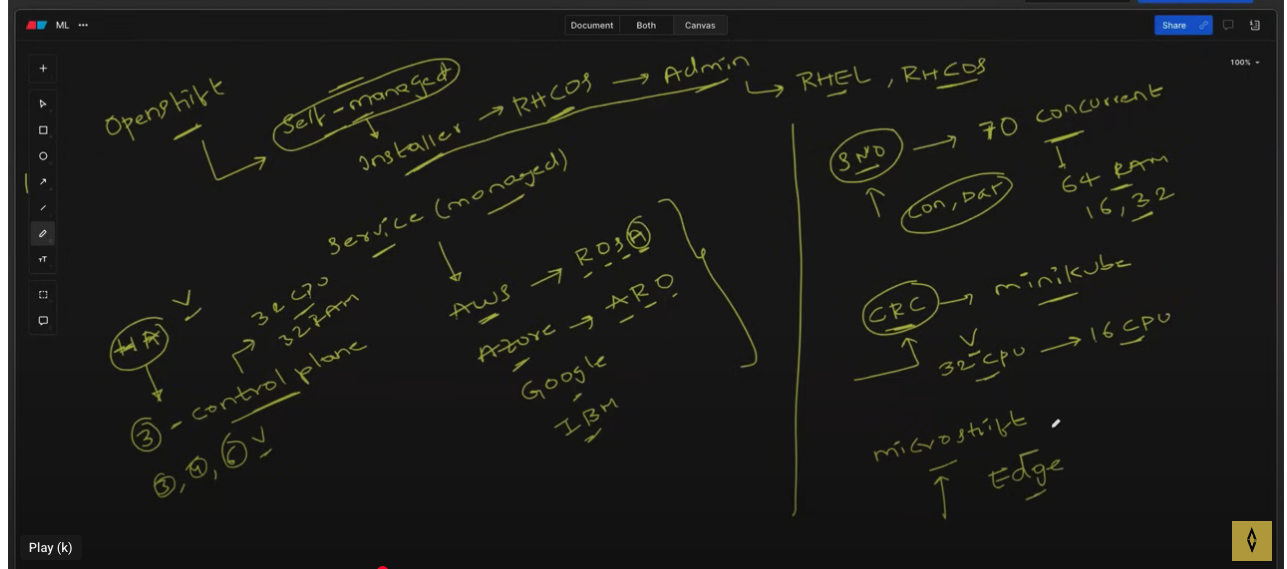 ML ...
Document Both Canvas
Share
100%
Openshift
Self-managed
Installer → RHCOS → Admin
RHEL, RHCOS
Service (managed)
AWS → ROSA
Azure → ARO
Google
IBM
HA
32 CPU
32 RAM
3 - control plane
3, 4, 6
SNO → 70 concurrent
64 RAM
16, 32
CRC → minikube
32 CPU → 16 CPU
microshift
Edge
Play (k)